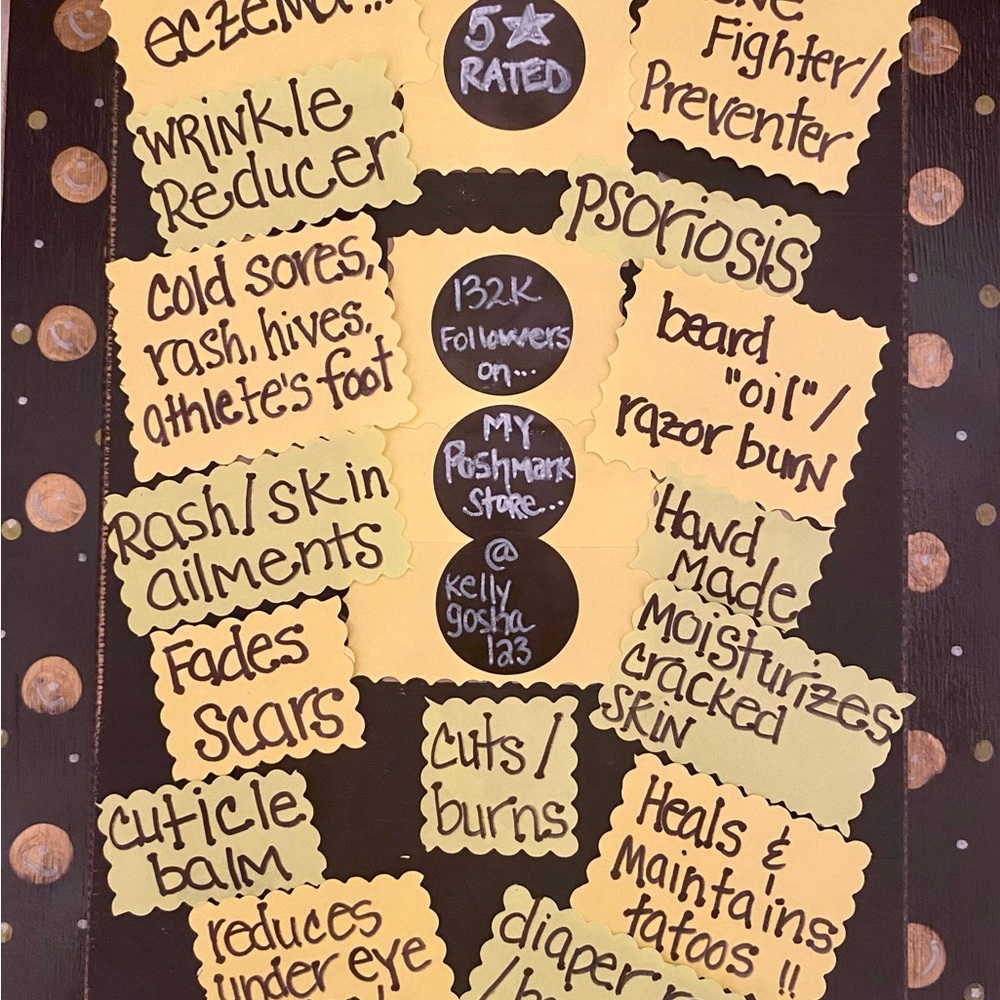 eczema...
5☆
RATED
Fighter/
Preventer
WRINKle
Reducer
PSoriosis
cold sores,
rash, hives,
athlete's foot
132K
Followers
on...
beard
"oil"/
razor burN
MY
Poshmark
Store...
Rash/skin
ailments
HaNd
Made
@
kelly
gosha
123
Moisturizes
cracked
SKiN
Fades
scars
cuts/
burns
Heals &
Maintains
tatoos !!
cuticle
balm
reduces
under eye
diaper